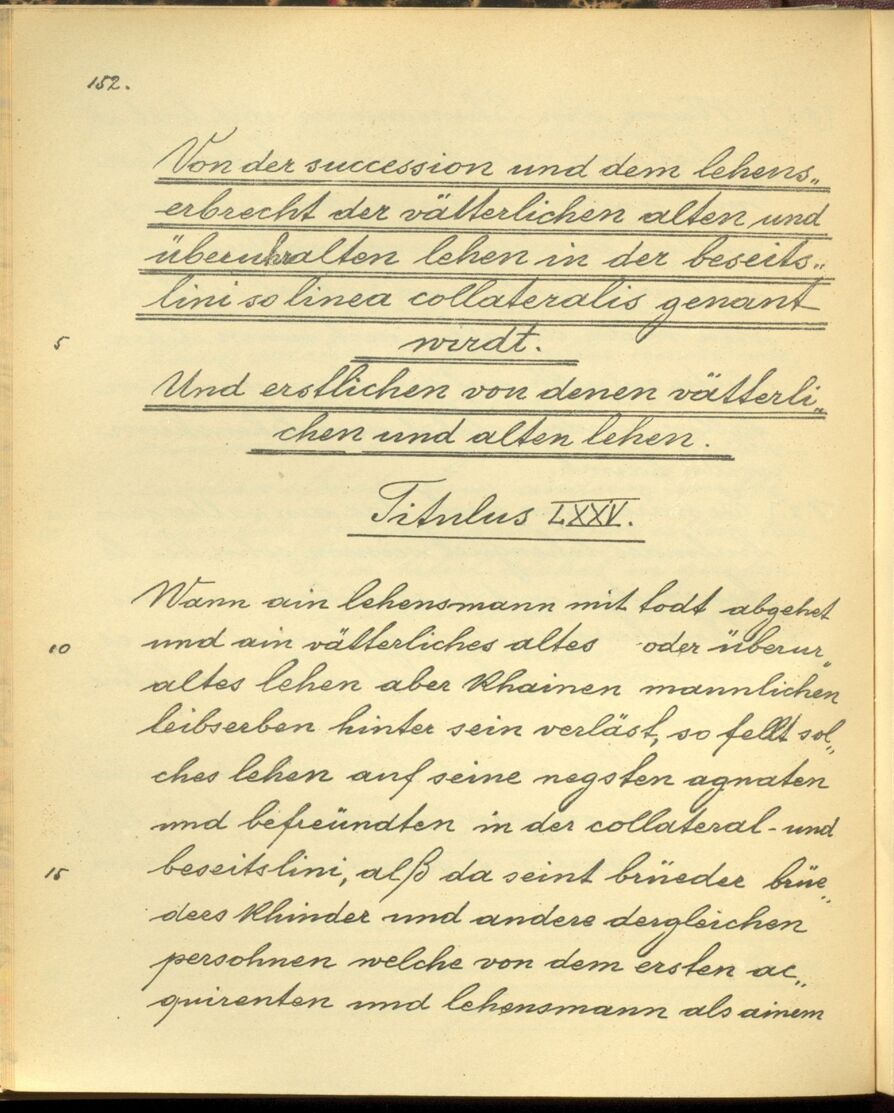 152.
Von der succession und dem lehens„
erbrecht der vätterlichen alten und
überuhralten lehen in der beseits„
lini so linea collateralis genant
5 wirdt.
Und erstlichen von denen vätterli„
chen und alten lehen.
Titulus LXXV.
Wann ain lehensmann mit todt abgehet
10 und ain vätterliches altes oder überur„
altes lehen aber khainen mannlichen
leibserben hinter sein verläst, so fellt sol„
ches lehen auf seine negsten agnaten
und befreündten in der collateral- und
15 beseitslini, alß da seint brüeder brüe„
ders khinder und andere dergleichen
persohnen welche von dem ersten ac„
quirenten und lehensmann als ainem